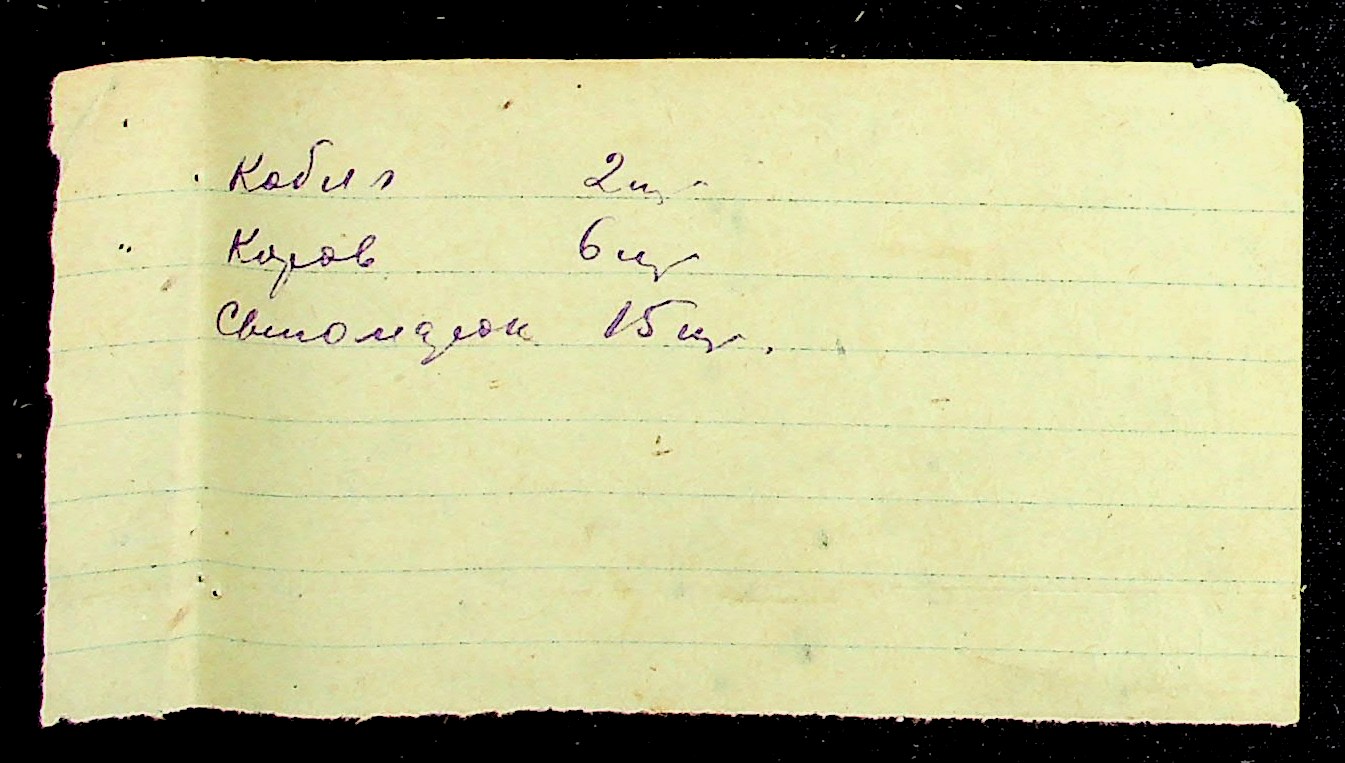 Кобыл 2 шт
Коров 6 шт
Свиноматок 15 шт.